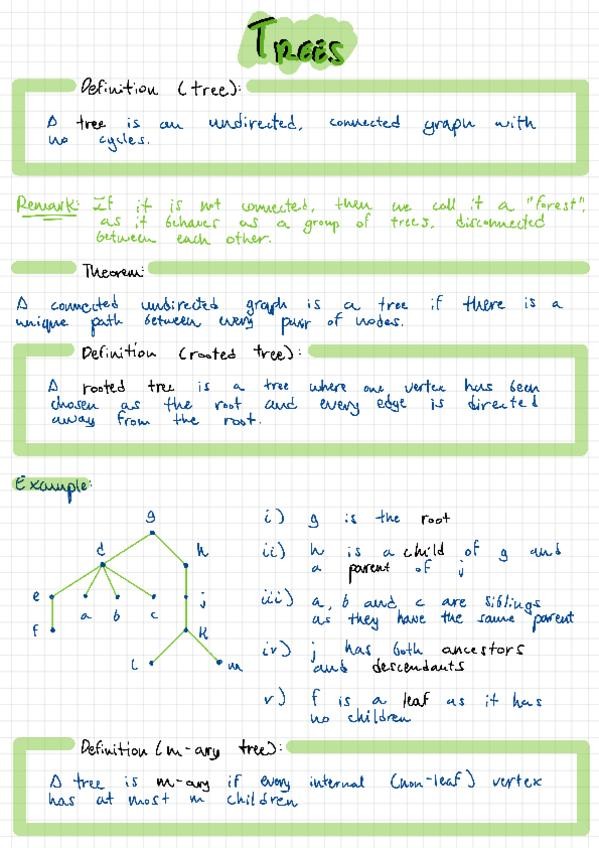 Trees
Definition (tree):
A tree is an undirected, connected graph with
no cycles.
Remark: If it is not connected, then we call it a "forest",
as it behaves as a group of trees, disconnected
between each other.
Theorem:
A connected undirected graph is a tree if there is a
unique path between every pair of nodes.
Definition (rooted tree):
A rooted tree is a tree where one vertex has been
chosen as the root and every edge is directed
away from the root.
Example:
g
d
h
e
a
b
c
j
f
k
l
m
i) g is the root
ii) h is a child of g and
a parent of j
iii) a, b and c are siblings
as they have the same parent
iv) j has both ancestors
and descendants
v) f is a leaf as it has
no children
Definition (m-ary tree):
A tree is m-ary if every internal (non-leaf) vertex
has at most m children